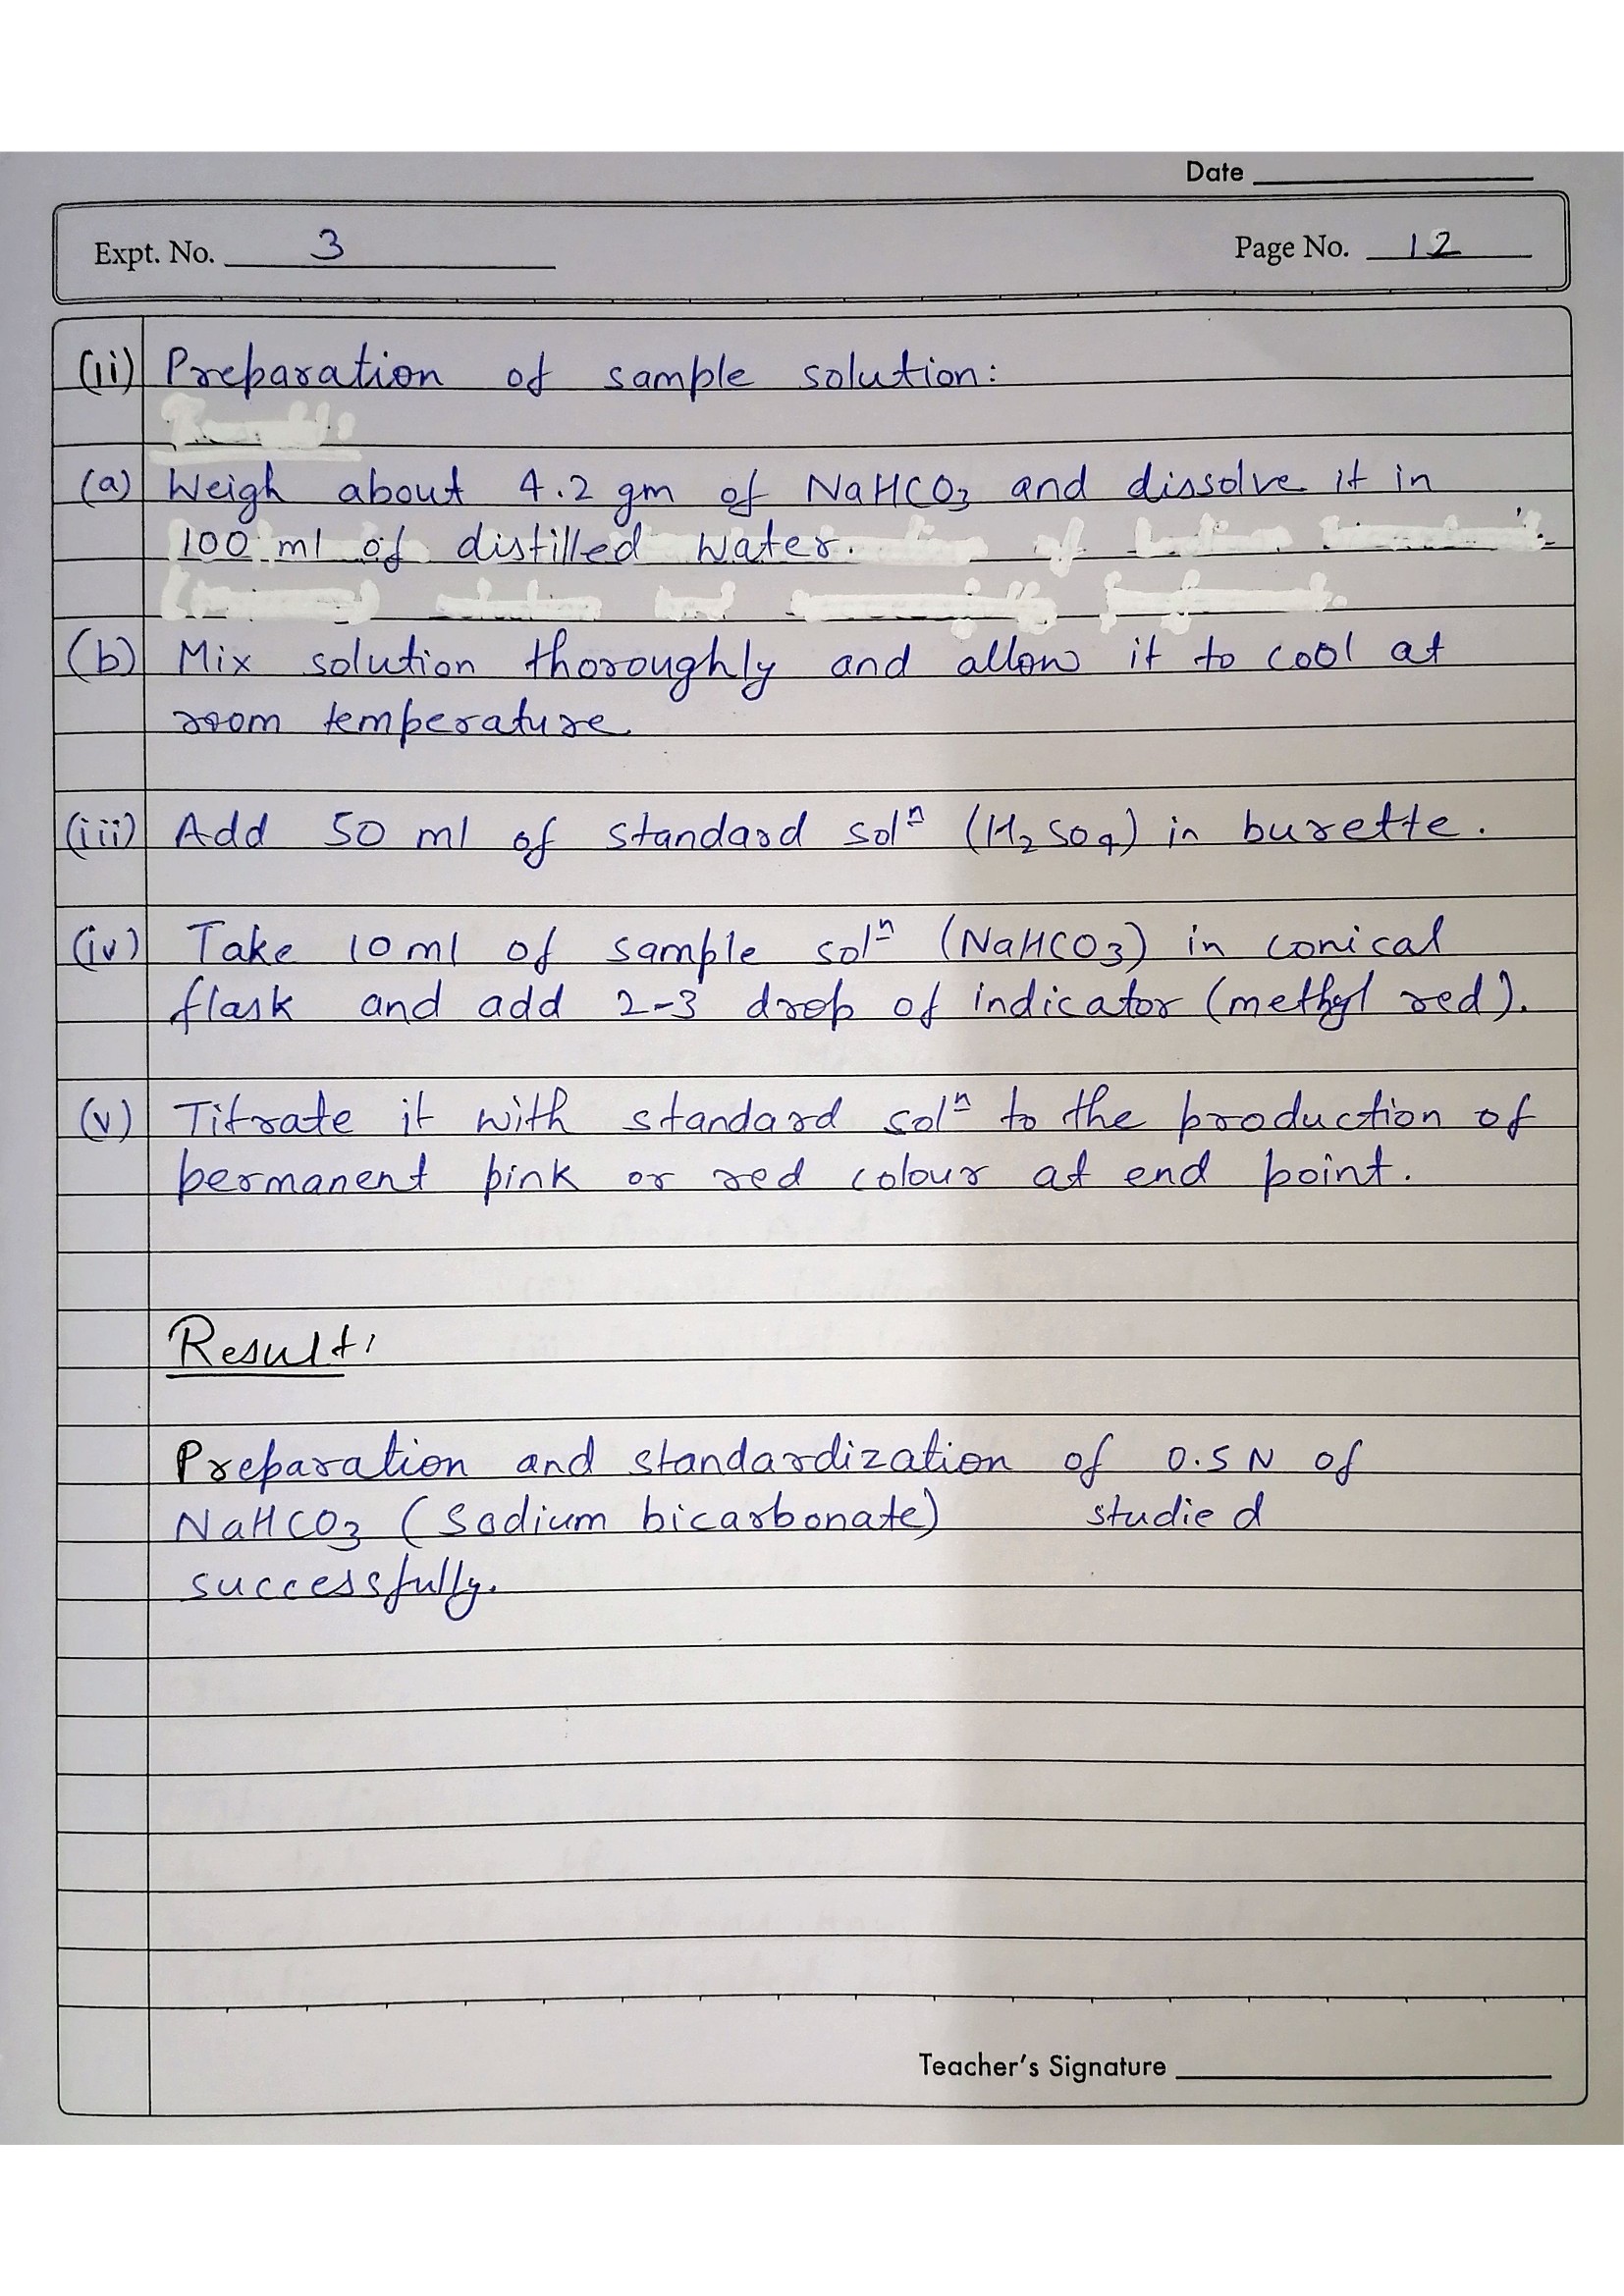 Date
Expt. No. 3
Page No. 12
(ii) Preparation of sample solution:
(a) Weigh about 4.2 gm of NaHCO3 and dissolve it in
100 ml of distilled water.
(b) Mix solution thoroughly and allow it to cool at
room temperature.
(iii) Add 50 ml of standard solⁿ (H2SO4) in burette.
(iv) Take 10 ml of sample solⁿ (NaHCO3) in conical
flask and add 2-3 drop of indicator (methyl red).
(v) Titrate it with standard solⁿ to the production of
permanent pink or red colour at end point.
Result:
Preparation and standardization of 0.5 N of
NaHCO3 (Sodium bicarbonate) studied
successfully.
Teacher's Signature